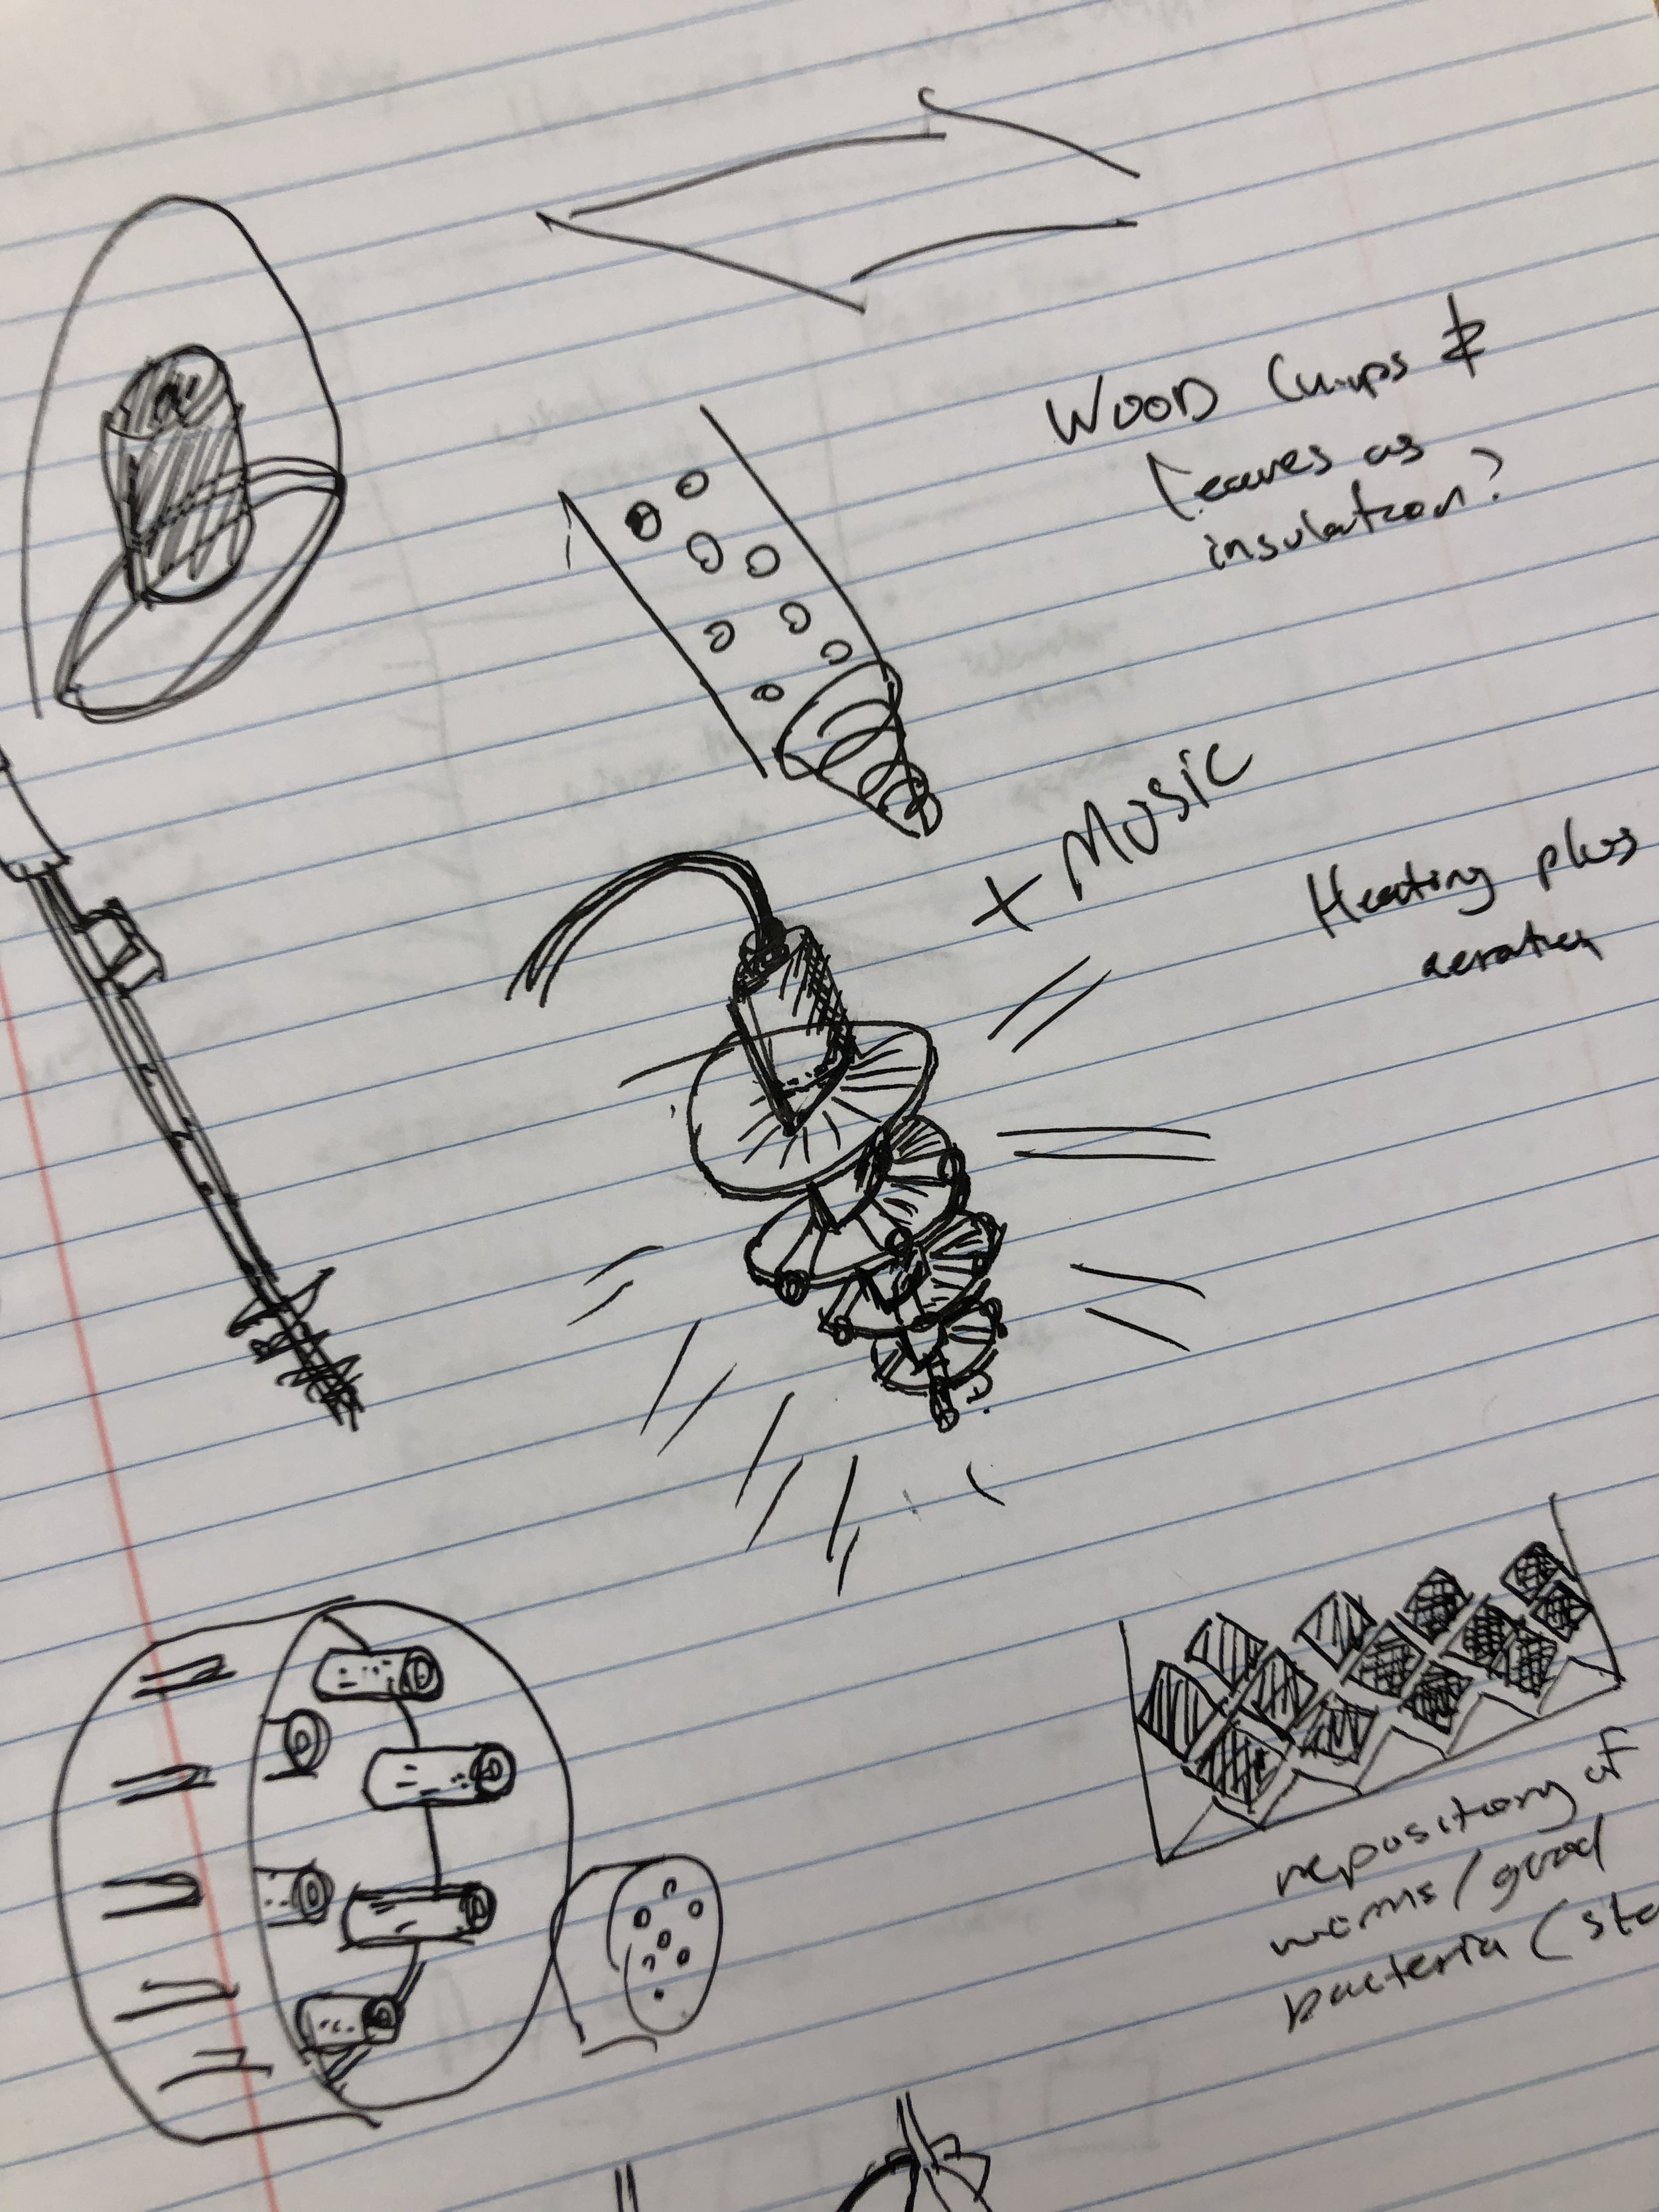 WOOD Chips &
Leaves as
insulation?
+ MUSIC
Heating plus
aeration
repository of
worms/good
bacteria (sta